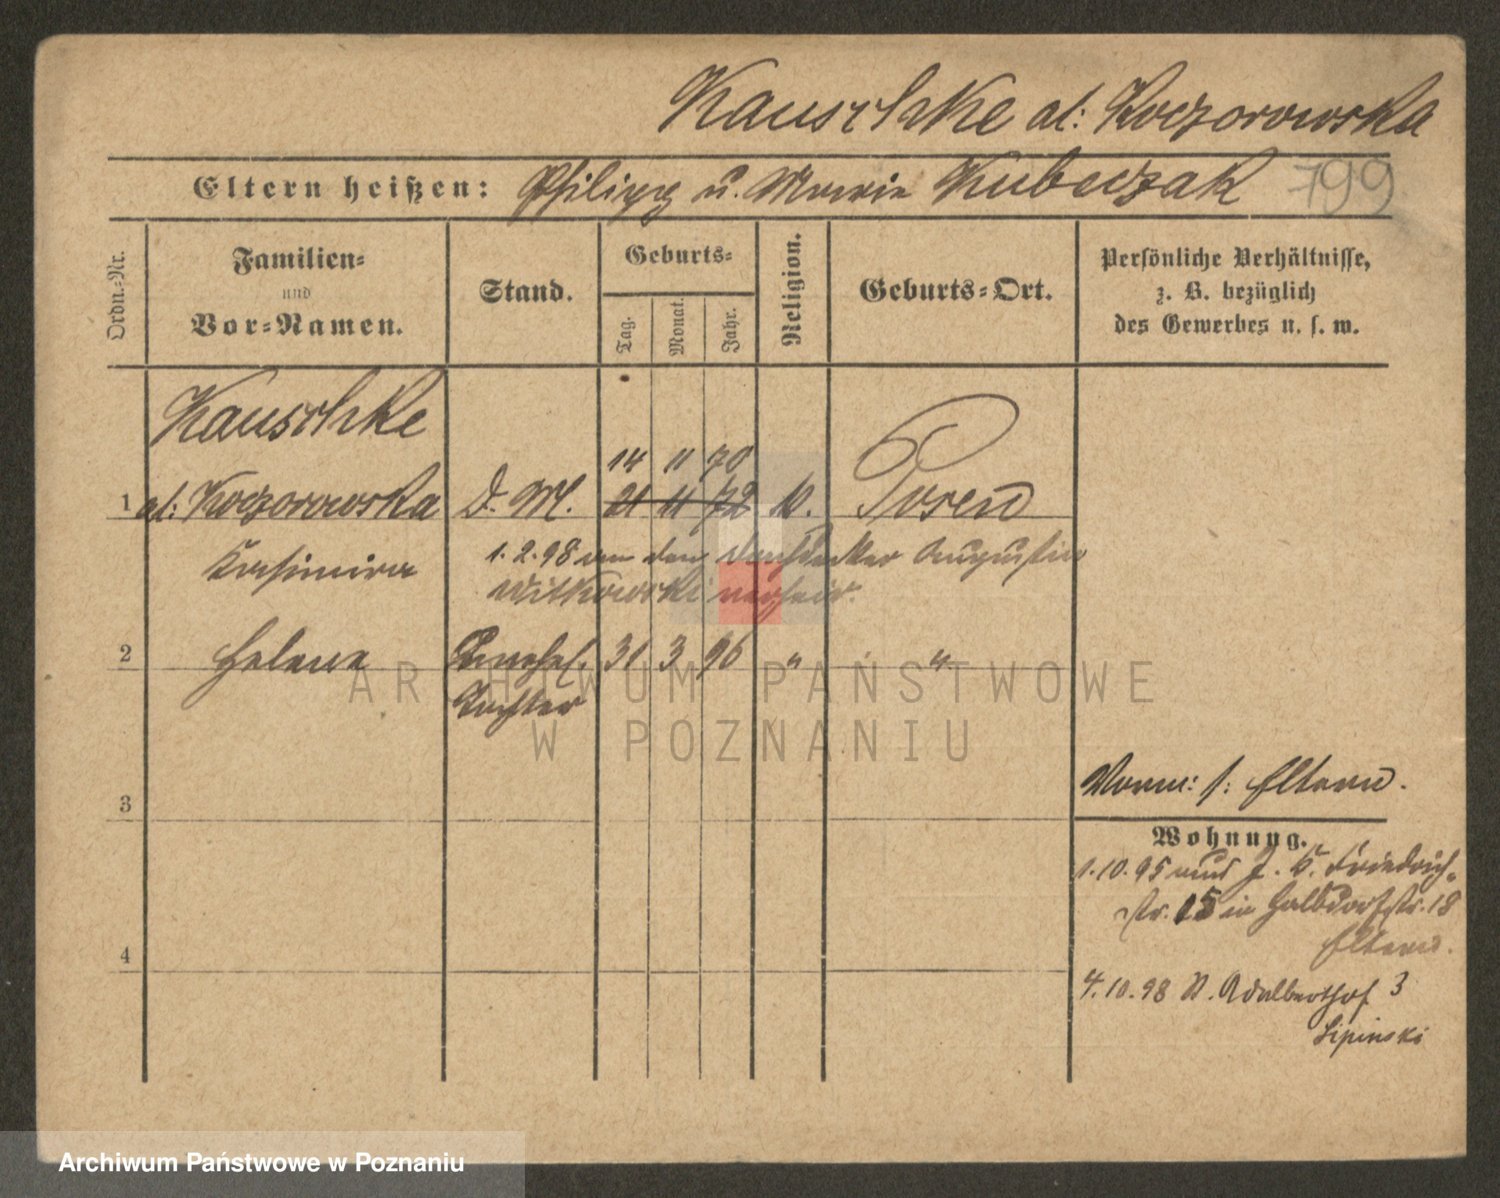 Kauschke al: Koczorowska
Eltern heißen: Philipp u. Marie Kubeczak 799
Ordn.-Nr.
Familien-
und
Vor-Namen.
Stand.
Geburts-
Tag.
Monat.
Jahr.
Religion.
Geburts-Ort.
Persönliche Verhältnisse,
z. B. bezüglich
des Gewerbes u. s. w.
Kauschke
14 11 70
1 al: Koczorowska D. M. 21 11 72 k. Posen
Kasimira 1.2.98 an den Dachdecker Augustin
Witkowski verheir.
2 Helene Unehel. 31 3 96 " "
Tochter
3
Vorm: s: Eltern.
Wohnung.
1.10.95 Friedrich-
str. 15 in Halbdorfstr. 18
Eltern.
4
4.10.98 Adalberthof 3
Lipinski
ARCHIWUM PAŃSTWOWE
W POZNANIU
Archiwum Państwowe w Poznaniu